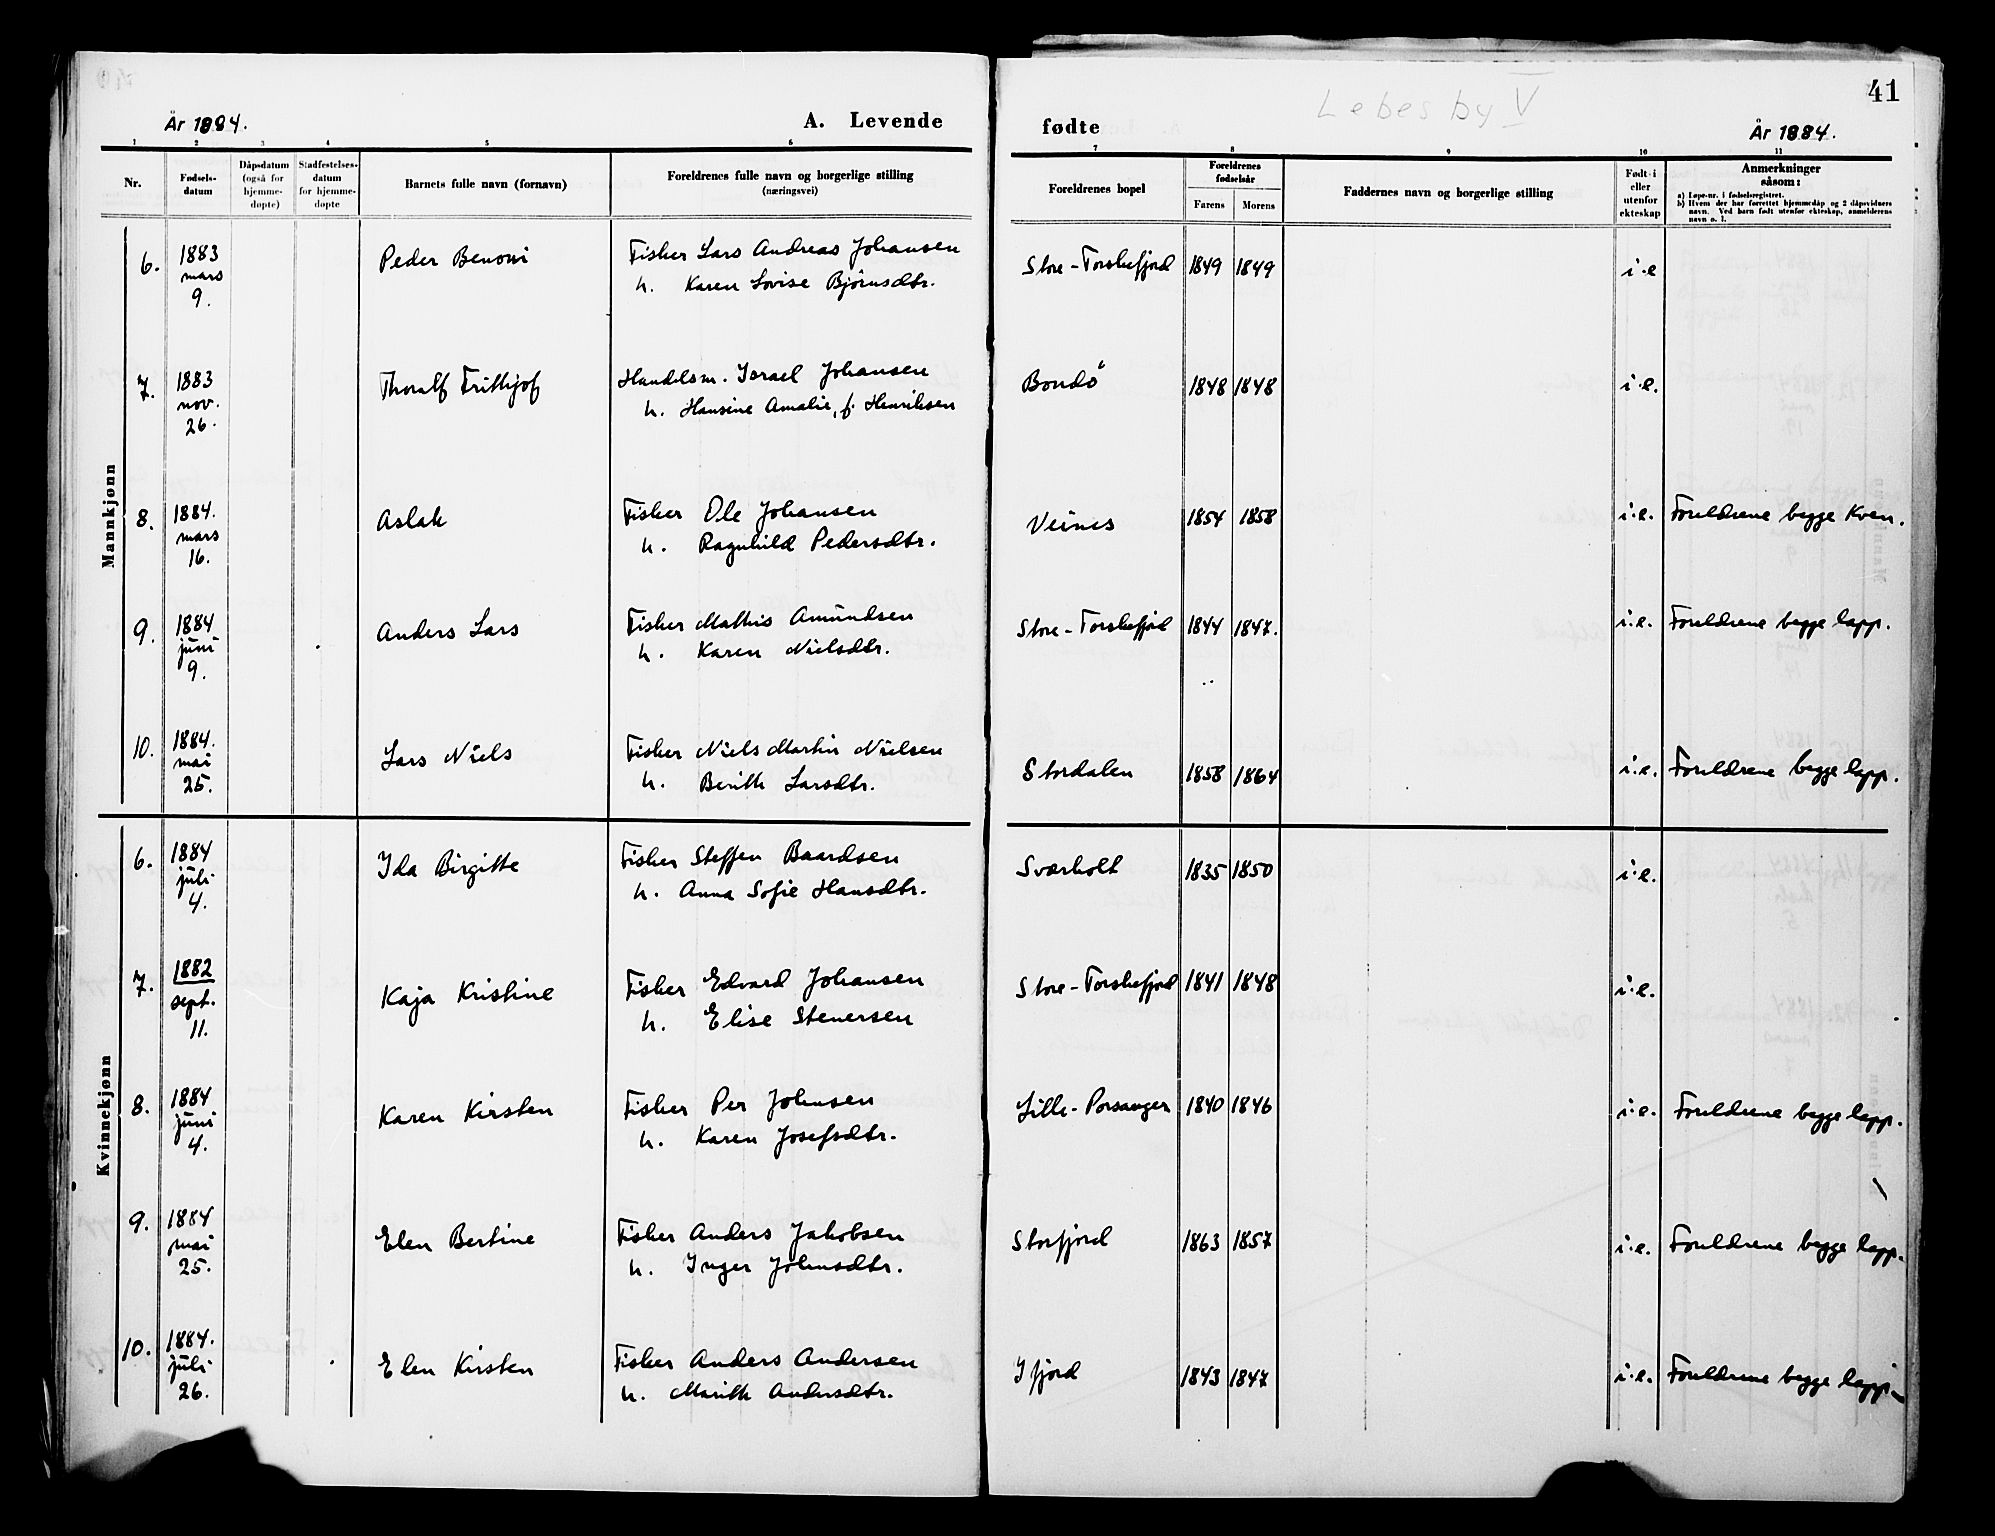 År 1884.
A. Levende
1 2 3 4 5 6
Nr.
Fødsels-
datum
Dåpsdatum
(også for
hjemme-
døpte)
Stadfestelses-
datum
for hjemme-
døpte
Barnets fulle navn (fornavn)
Foreldrenes fulle navn og borgerlige stilling
(næringsvei)
Mannkjønn
6.
1883
mars
9.
Peder Benoni
Fisker Lars Andreas Johansen
h. Karen Lovise Bjørnsdtr.
7.
1883
nov.
26.
Thoralf Frithjof
Handelsm. Israel Johansen
h. Hansine Amalie, f. Henriksen
8.
1884.
mars
16.
Aslak
Fisker Ole Johansen
h. Ragnhild Pedersdtr.
9.
1884
juni
9.
Anders Lars
Fisker Mathis Amundsen
h. Karen Nielsdtr.
10.
1884.
mai
25.
Lars Niels
Fisker Niels Martin Nielsen
h. Berith Larsdtr.
Kvinnekjønn
6.
1884
juli
4.
Ida Birgitte
Fisker Steffen Baardsen
h. Anna Sofie Hansdtr.
7.
1882
sept.
11.
Kaja Kristine
Fisker Edvard Johansen
h. Elise Stenersen
8.
1884
juni
4.
Karen Kirsten
Fisker Per Johnsen
h. Karen Josefsdtr.
9.
1884
mai
25.
Elen Bertine
Fisker Anders Jakobsen
h. Inger Johnsdtr.
10.
1884.
juli
26.
Elen Kirsten
Fisker Anders Andersen
h. Marith Andersdtr.
Lebesby V
41
fødte
År 1884.
7 8 9 10 11
Foreldrenes bopel
Foreldrenes
fødselsår
Farens Morens
Faddernes navn og borgerlige stilling
Født i
eller
utenfor
ekteskap
Anmerkninger
såsom:
a) Løpe-nr. i fødselsregistret.
b) Hvem der har forrettet hjemmedåp og 2 dåpsvidners
navn. Ved barn født utenfor ekteskap, anmelderens
navn o. l.
Store-Torskefjord 1849 1849 i.e
Bondö 1848 1848 i.e.
Veines 1854 1858 i.e. Foreldrene begge Kven.
Store-Torskefjord 1844 1847. i.e. Foreldrene begge lapp.
Stordalen 1858 1864 i.e. Foreldrene begge lapp.
Sværholt 1835 1850 i.e.
Store-Torskefjord 1841 1848 i.e.
Lille-Porsanger 1840 1846 i.e. Foreldrene begge lapp.
Storfjord 1863 1857 i.e. Foreldrene begge lapp.
Ifjord 1843 1847 i.e. Foreldrene begge lapp.